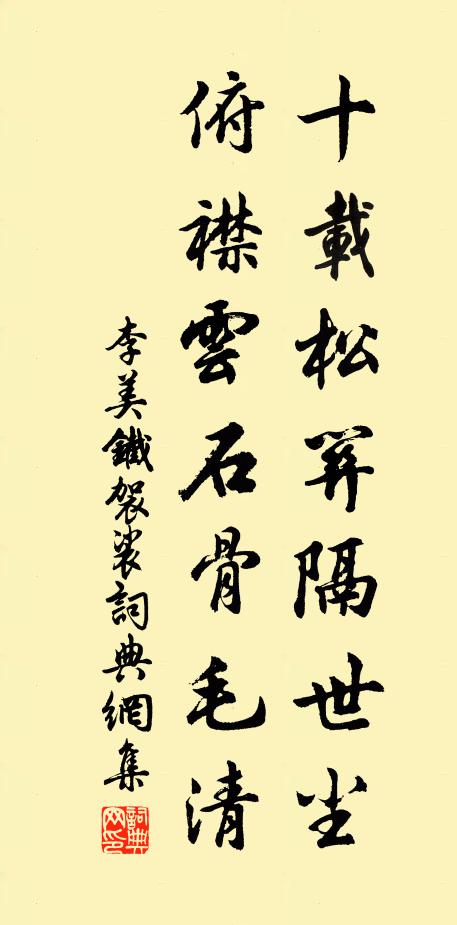 十載松關隔世尘
俯襟雲石骨毛清
李美鐵袈裟詞典網集
詞典网印